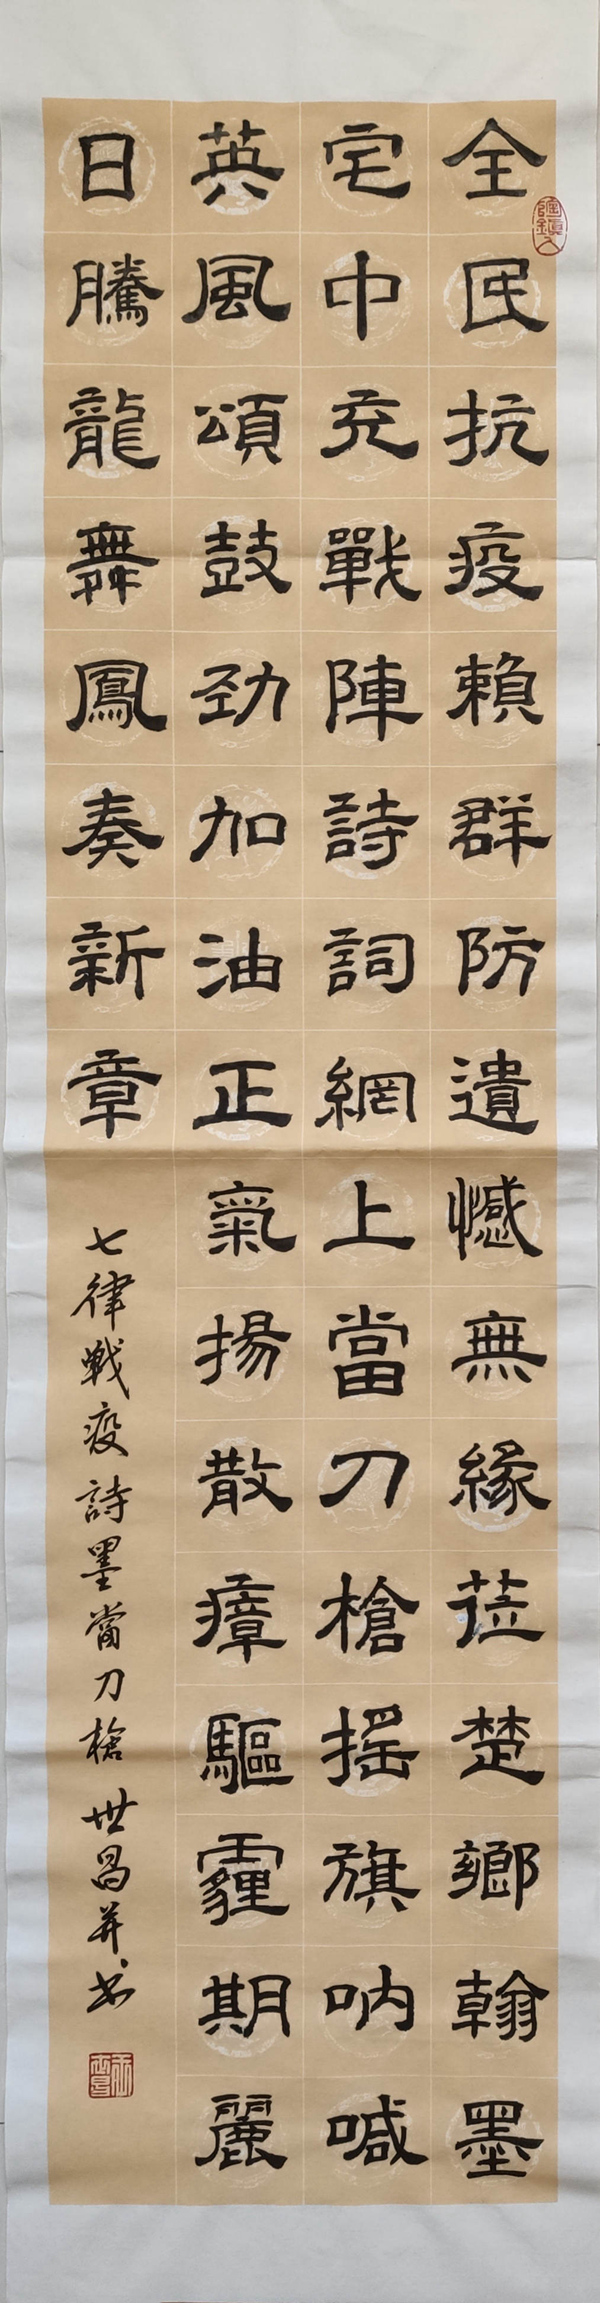 全民抗疫賴群防遺憾無緣莅楚鄉翰墨
宅中充戰陣詩詞網上當刀槍搖旗吶喊
英風頌鼓劲加油正氣揚散瘴驅霾期麗
日騰龍舞鳳奏新章
七律戰疫詩墨當刀槍 世昌并书